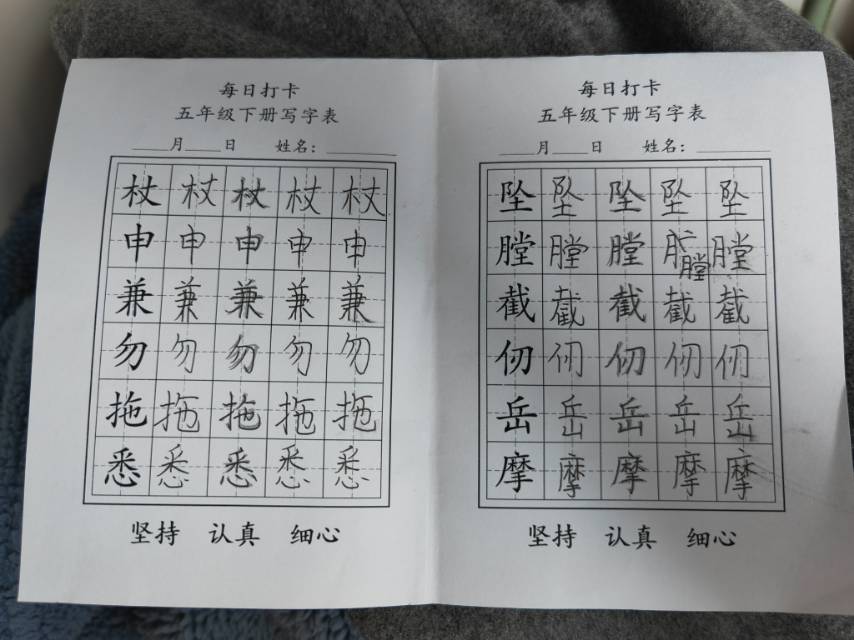 每日打卡
五年级下册写字表
____月____日 姓名：________
杖 杖 杖 杖 杖
申 申 申 申 申
兼 兼 兼 兼 兼
勿 勿 勿 勿 勿
拖 拖 拖 拖 拖
悉 悉 悉 悉 悉
坚持 认真 细心
每日打卡
五年级下册写字表
____月____日 姓名：________
坠 坠 坠 坠 坠
膛 膛 膛 膛 膛
截 截 截 截 截
仞 仞 仞 仞 仞
岳 岳 岳 岳 岳
摩 摩 摩 摩 摩
坚持 认真 细心